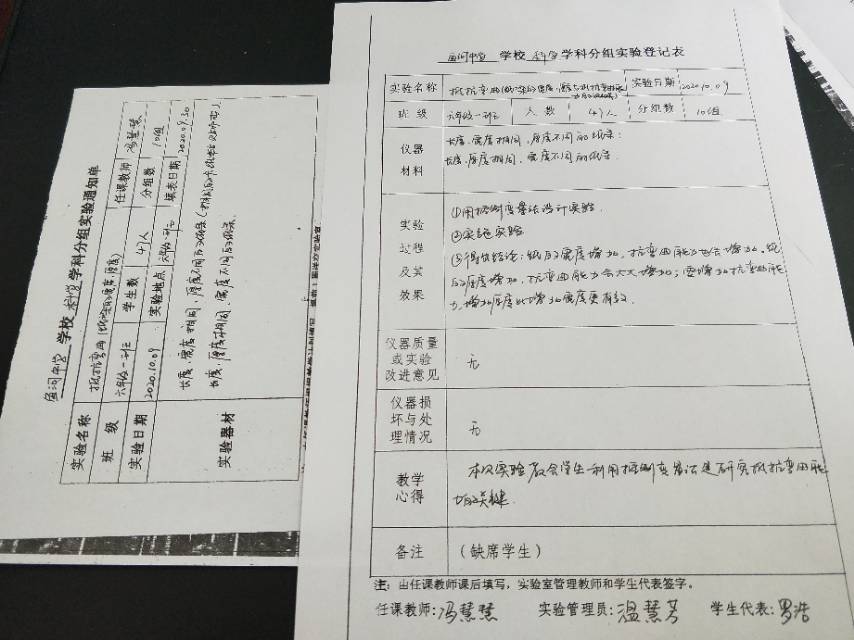 学校 科学 学科分组实验通知单
实验名称 抵抗弯曲
任课教师 冯慧慧
班级 六年级一班
学生数 47人
分组数 10组
实验日期 2020.10.09
实验地点 六年级一班
填表日期 2020.09.30
实验器材
长度、宽度相同，厚度不同的纸条
长度、厚度相同，宽度不同的纸条。
学校 科学 学科分组实验登记表
实验名称 抵抗弯曲
实验日期 2020.10.09
班级 六年级一班 人数 47人 分组数 10组
仪器材料
长度、宽度相同，厚度不同的纸条；
长度、厚度相同，宽度不同的纸条
实验过程及其效果
①用控制变量法设计实验
②实施实验
③得出结论：纸的宽度增加，抗弯曲能力也会增加。纸
的厚度增加，抗弯曲能力会大大增加；要增加抗弯曲能
力，增加厚度比增加宽度更有效。
仪器质量或实验改进意见 无
仪器损坏与处理情况 无
教学心得
本次实验教会学生利用控制变量法是研究抵抗弯曲能
力的关键
备注 （缺席学生）
注：由任课教师课后填写，实验室管理教师和学生代表签字。
任课教师：冯慧慧 实验管理员：温慧芳 学生代表：罗浩